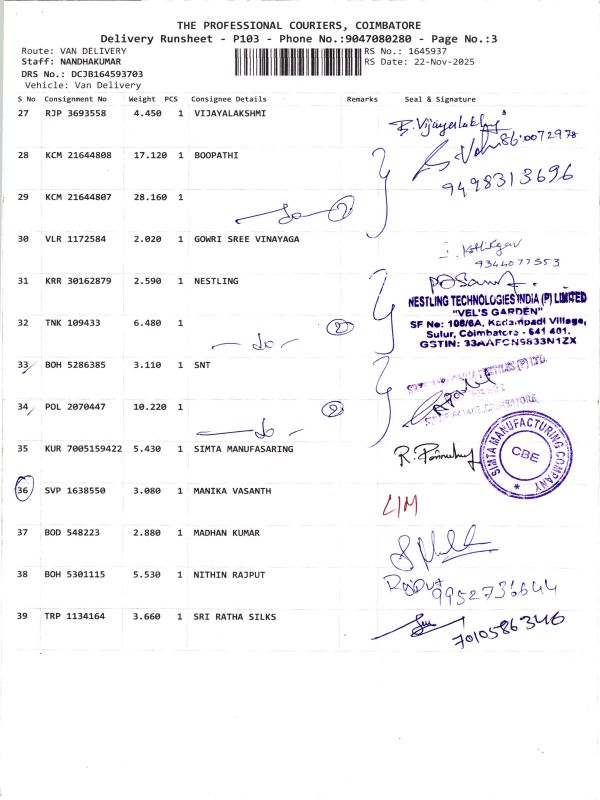 THE PROFESSIONAL COURIERS, COIMBATORE
Delivery Runsheet - P103 - Phone No.:9047080280 - Page No.:3
Route: VAN DELIVERY
RS No.: 1645937
Staff: NANDHAKUMAR
RS Date: 22-Nov-2025
DRS No.: DCJB164593703
Vehicle: Van Delivery
S No Consignment No Weight PCS Consignee Details Remarks Seal & Signature
27 RJP 3693558 4.450 1 VIJAYALAKSHMI
B. Vijayalakshmi
28 KCM 21644808 17.120 1 BOOPATHI
9498313696
29 KCM 21644807 28.160 1
do 2
30 VLR 1172584 2.020 1 GOWRI SREE VINAYAGA
9344077353
31 KRR 30162879 2.590 1 NESTLING
NESTLING TECHNOLOGIES INDIA (P) LIMITED
"VEL'S GARDEN"
SF No: 108/6A, Kadampadi Village,
Sulur, Coimbatore - 641 401.
GSTIN: 33AAFCN9833N1ZX
32 TNK 109433 6.480 1
- do - 2
33 BOH 5286385 3.110 1 SNT
34 POL 2070447 10.220 1
- do - 2
COIMBATORE
35 KUR 7005159422 5.430 1 SIMTA MANUFASARING
SIMTA MANUFACTURING COMPANY
CBE
36 SVP 1638550 3.080 1 MANIKA VASANTH
L/M
37 BOD 548223 2.880 1 MADHAN KUMAR
38 BOH 5301115 5.530 1 NITHIN RAJPUT
Rajput
9952736644
39 TRP 1134164 3.660 1 SRI RATHA SILKS
7010586346